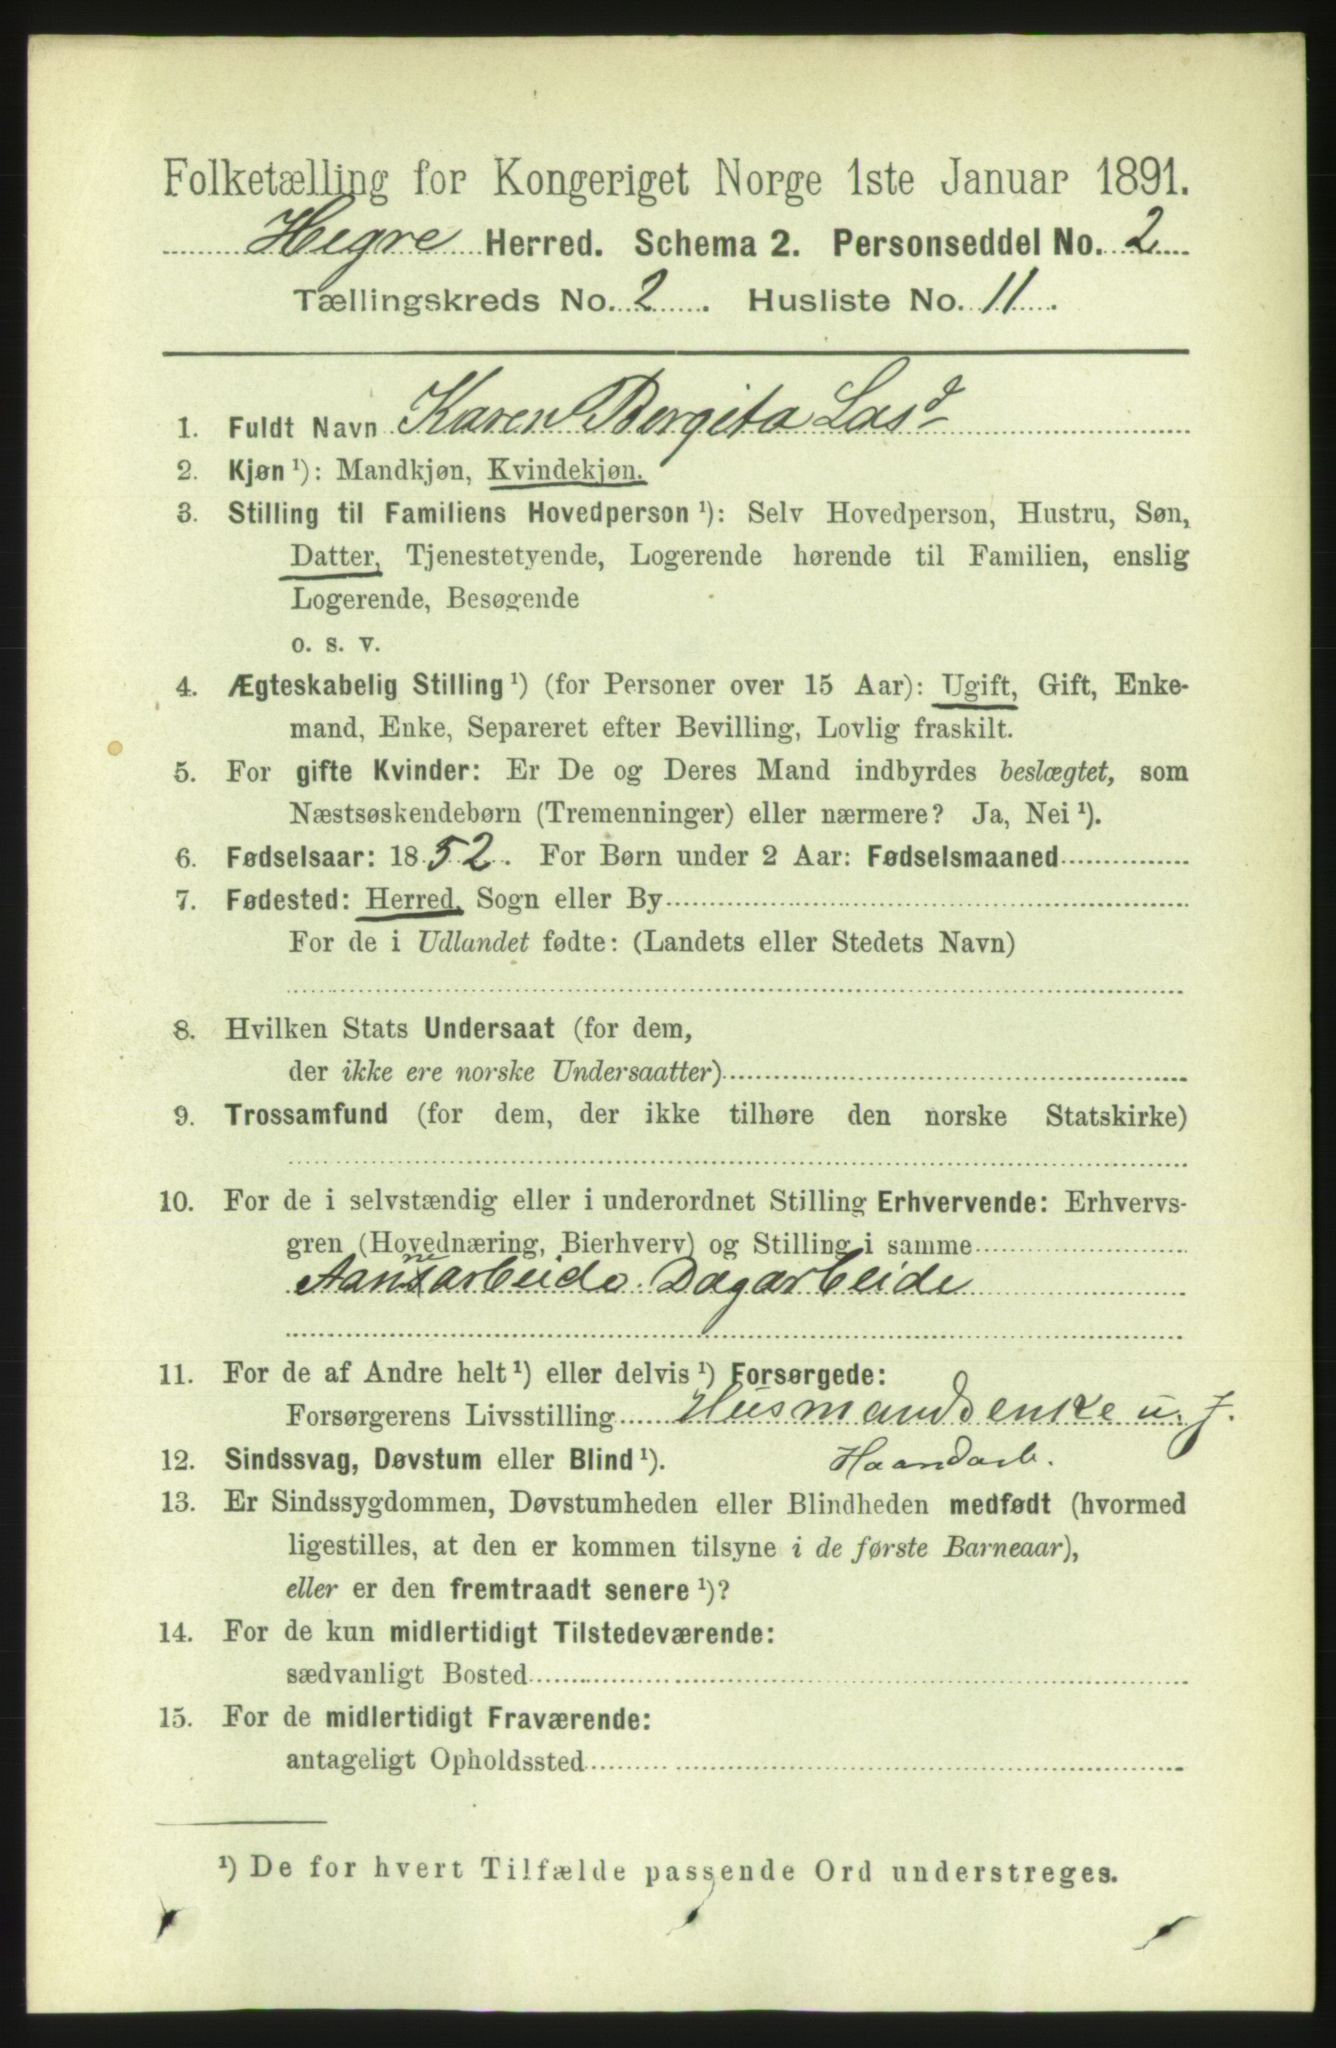 Folketælling for Kongeriget Norge 1ste Januar 1891.
Hegre Herred. Schema 2. Personseddel No. 2
Tællingskreds No. 2. Husliste No. 11.
1. Fuldt Navn Karen Bergita Lasd
2. Kjøn ¹): Mandkjøn, Kvindekjøn.
3. Stilling til Familiens Hovedperson ¹): Selv Hovedperson, Hustru, Søn,
Datter, Tjenestetyende, Logerende hørende til Familien, enslig
Logerende, Besøgende
o. s. v.
4. Ægteskabelig Stilling ¹) (for Personer over 15 Aar): Ugift, Gift, Enke-
mand, Enke, Separeret efter Bevilling, Lovlig fraskilt.
5. For gifte Kvinder: Er De og Deres Mand indbyrdes beslægtet, som
Næstsøskendebørn (Tremenninger) eller nærmere? Ja, Nei ¹).
6. Fødselsaar: 1852. For Børn under 2 Aar: Fødselsmaaned
7. Fødested: Herred, Sogn eller By
For de i Udlandet fødte: (Landets eller Stedets Navn)
8. Hvilken Stats Undersaat (for dem,
der ikke ere norske Undersaatter)
9. Trossamfund (for dem, der ikke tilhøre den norske Statskirke)
10. For de i selvstændig eller i underordnet Stilling Erhvervende: Erhvervs-
gren (Hovednæring, Bierhverv) og Stilling i samme
Dagarbeide
11. For de af Andre helt ¹) eller delvis ¹) Forsørgede:
Forsørgerens Livsstilling Husmandsenke u. J.
12. Sindssvag, Døvstum eller Blind ¹). Haandarb.
13. Er Sindssygdommen, Døvstumheden eller Blindheden medfødt (hvormed
ligestilles, at den er kommen tilsyne i de første Barneaar),
eller er den fremtraadt senere ¹)?
14. For de kun midlertidigt Tilstedeværende:
sædvanligt Bosted
15. For de midlertidigt Fraværende:
antageligt Opholdssted
¹) De for hvert Tilfælde passende Ord understreges.